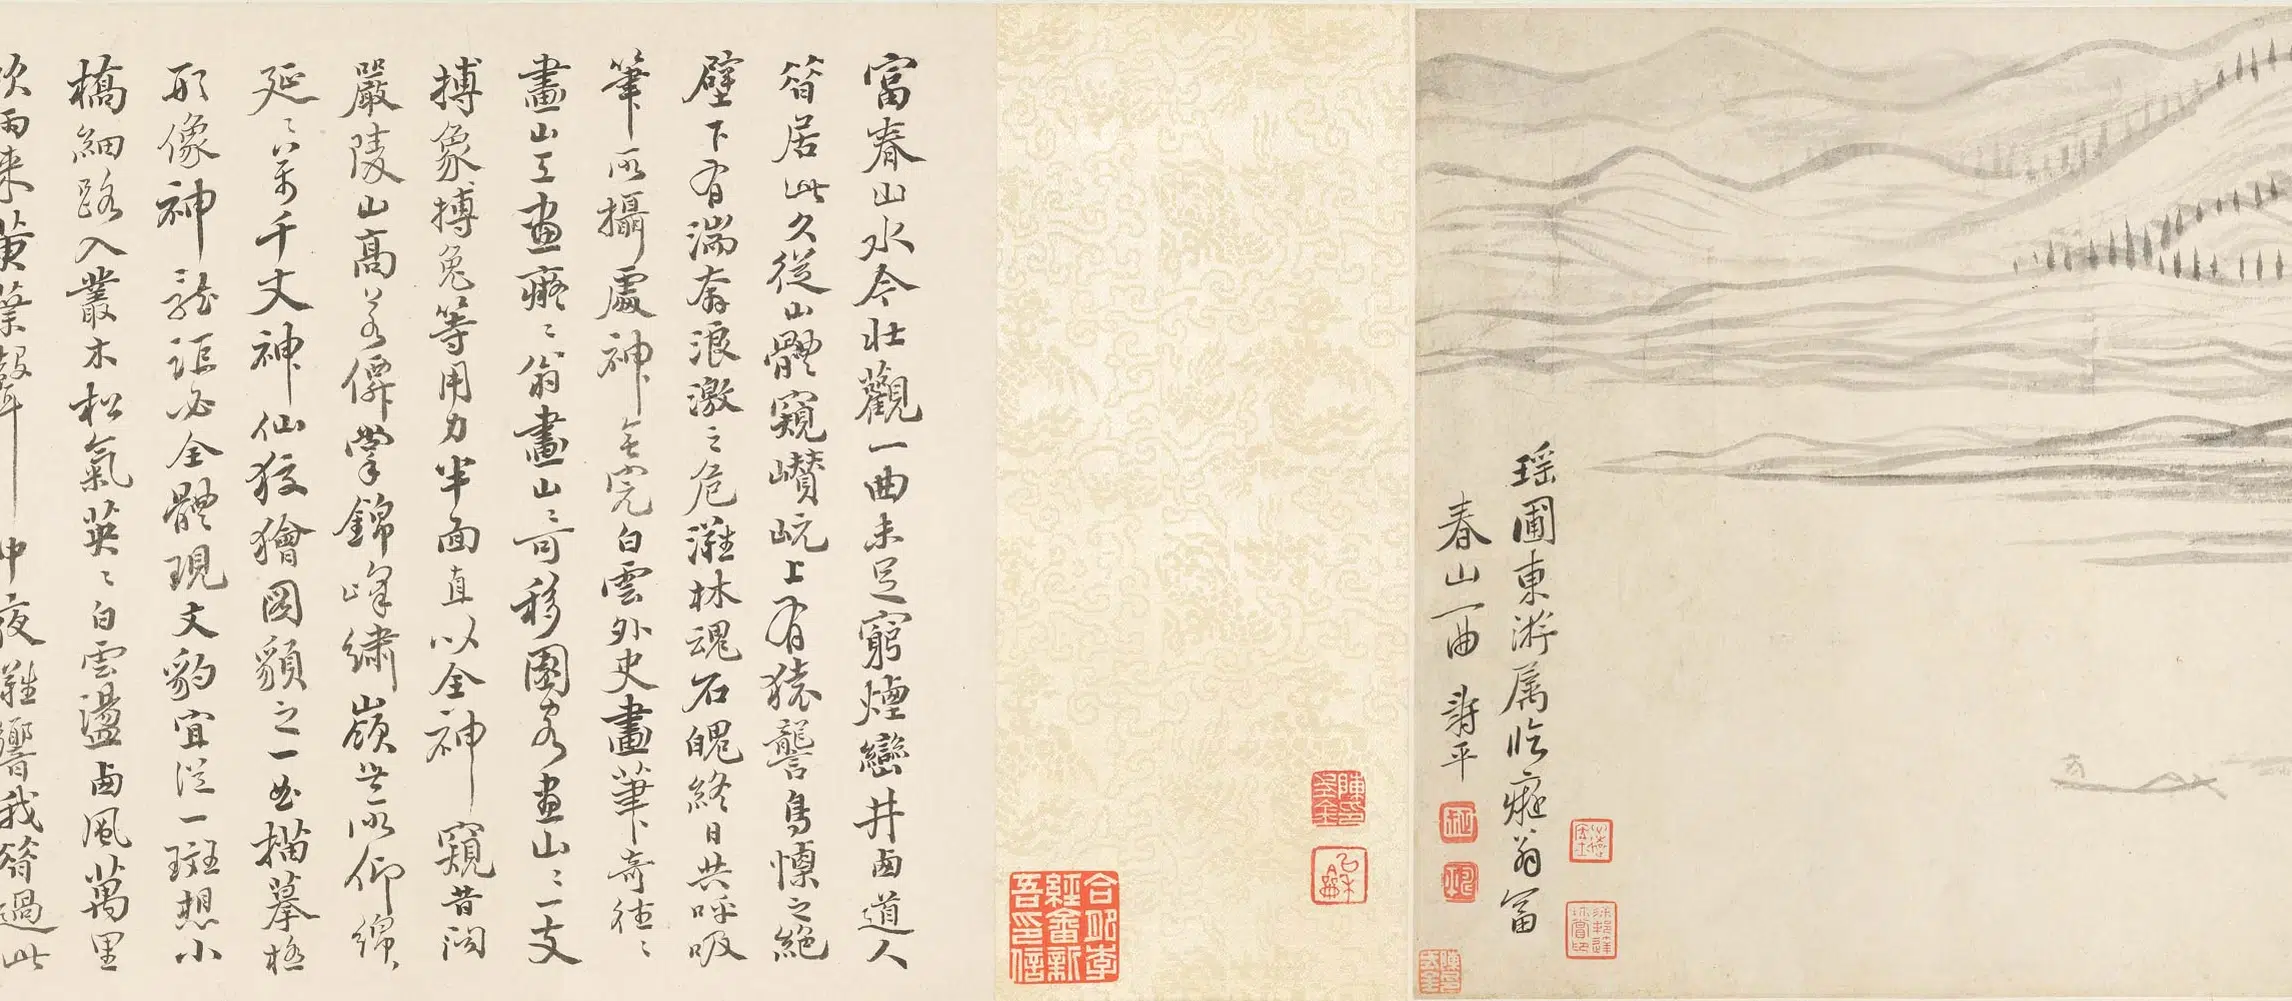 瑶圃東游屬臨癡翁富
春山一曲 壽平
富春山水今壯觀一曲未足窮煙巒井西道人
筇居此久從山體窺巑岏上有猿聾鳥慄之絕
壁下有湍奔浪激之危灘林魂石魄終日共呼吸
筆所攝處神無完白雲外史畫筆奇往々
畫山工畫癡々翁畫山々奇移園為畫山々一支
搏象搏兔等用力半面直以全神窺昔聞
嚴陵山高若僊掌錦峰繡嶺無所仰綿
延々萬千丈神仙狡獪圖貌之一曲描摹極
形像神龍詎必全體現文豹宜從一斑想小
橋細路入叢木松氣英々白雲盪西風萬里
吹雨來黃葉聲中夜灘響我筇過此